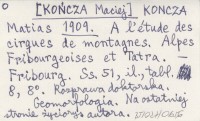 [KOŃCZA Maciej] KONCZA
Matias 1909. A l'étude des
cirques de montagnes. Alpes
Fribourgeoises et Tatra. —
Fribourg. Ss. 51, il., tabl.
8, 8°. Rozprawa doktorska.
Geomorfologia. Na ostatniej
stronie życiorys autora.